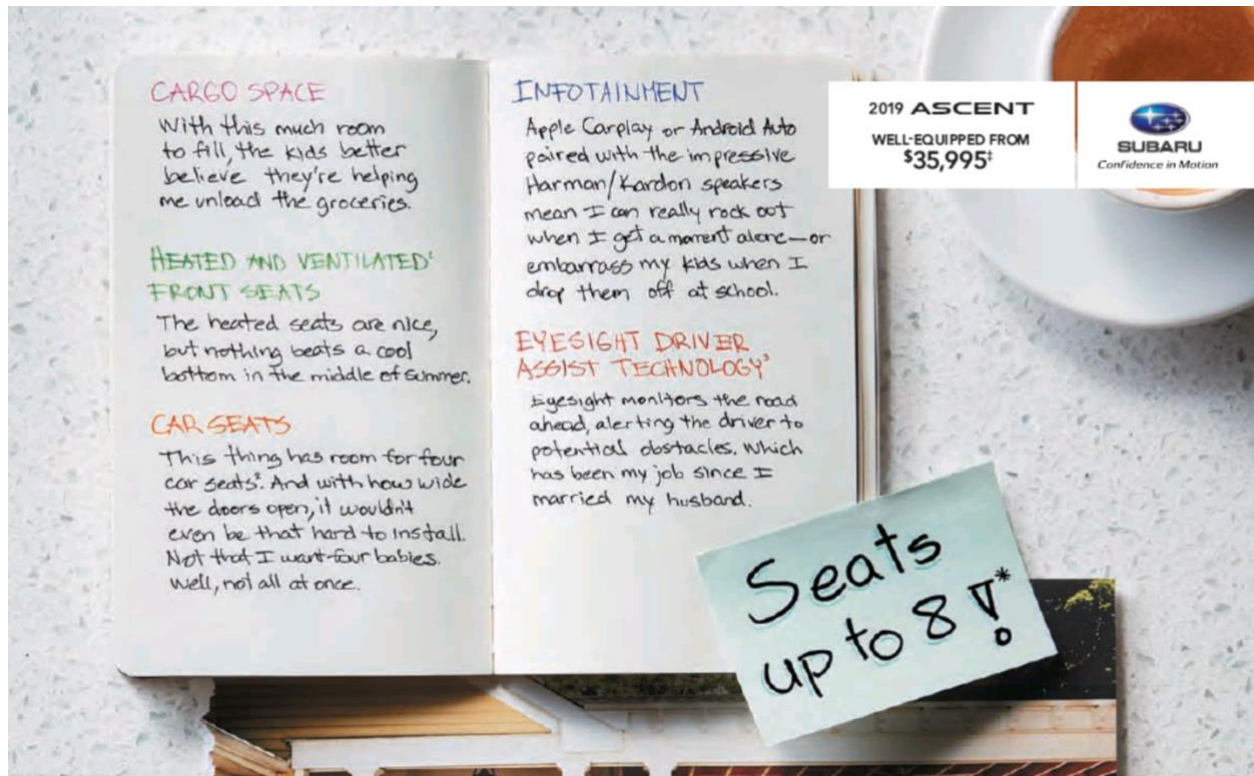 CARGO SPACE
With this much room
to fill, the kids better
believe they're helping
me unload the groceries.
HEATED AND VENTILATED¹
FRONT SEATS
The heated seats are nice,
but nothing beats a cool
bottom in the middle of summer.
CAR SEATS
This thing has room for four
car seats². And with how wide
the doors open, it wouldn't
even be that hard to install.
Not that I want four babies.
Well, not all at once.
INFOTAINMENT
Apple Carplay or Android Auto
paired with the impressive
Harman/Kardon speakers
mean I can really rock out
when I get a moment alone—or
embarrass my kids when I
drop them off at school.
EYESIGHT DRIVER
ASSIST TECHNOLOGY³
Eyesight monitors the road
ahead, alerting the driver to
potential obstacles. Which
has been my job since I
married my husband.
2019 ASCENT
WELL-EQUIPPED FROM
$35,995‡
SUBARU
Confidence in Motion
Seats
up to 8!*